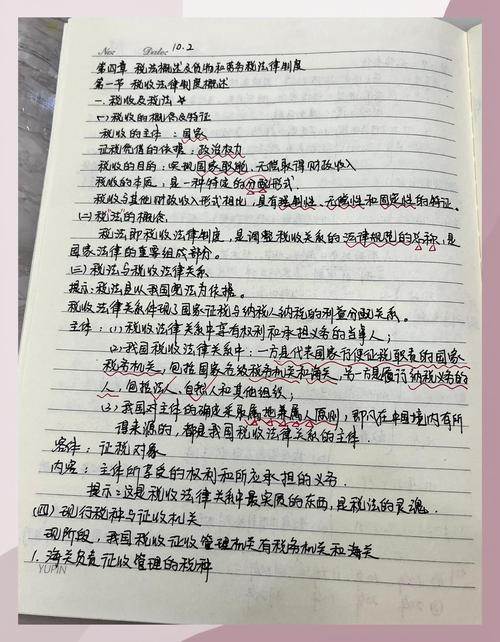 No: Date: 10.2
第四章 税法概述及货物和劳务税法律制度
第一节 税收法律制度概述
一. 税收及税法 ☆
(一) 税收的概念及特征
税收的主体：国家
征税凭借的依据：政治权力
税收的目的：实现国家职能，无偿取得财政收入
税收的本质：是一种特定的分配形式.
税收与其他财政收入形式相比，具有强制性、无偿性和固定性的特征。
(二) 税法的概念
税法即税收法律制度，是调整税收关系的法律规范的总称，是
国家法律的重要组成部分。
(三) 税法与税收法律关系
提示：税法是以我国宪法为依据。
税收法律关系体现了国家征税与纳税人纳税的利益分配关系。
主体：(1) 税收法律关系中享有权利和承担义务的当事人；
(2) 我国税收法律关系中：一方是代表国家行使征税职责的国家
税务机关，包括国家各级税务机关和海关，另一方是履行纳税义务的
人，包括法人、自然人和其他组织；
(3) 我国对主体的确定采取属地兼属人原则，即凡在中国境内有所
得来源的，都是我国税收法律关系的主体.
客体：征税对象
内容：主体所享受的权利和所应承担的义务.
提示：这是税收法律关系中最实质的东西，是税法的灵魂.
(四) 现行税种与征收机关
现阶段，我国税收征收管理机关有税务机关和海关
1. 海关负责征收管理的税种
YUPIN